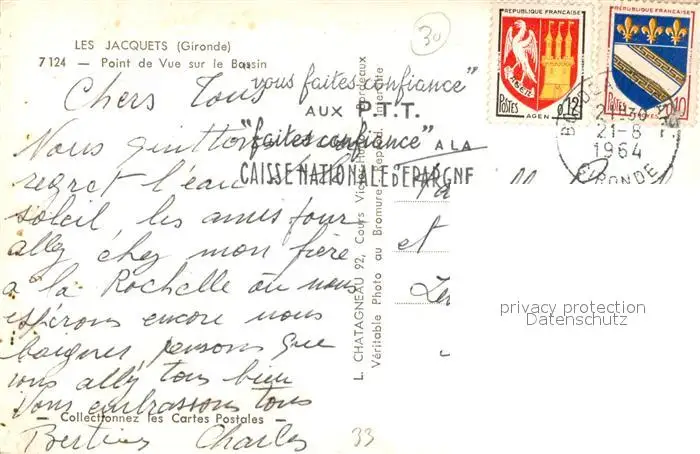 LES JACQUETS (Gironde)
7124 — Point de Vue sur le Bassin
30
Chers Tous
Nous quittons
regret l'eau le
soleil, les amis pour
allez chez mon frère
a la Rochelle où nous
espérons encore nous
baigner, pensons que
vous allez tous bien
Vous embrassons tous
Collectionnez les Cartes Postales
Charles
33
"vous faites confiance"
AUX P.T.T.
"faites confiance" A LA
CAISSE NATIONALE D'EPARGNE
L. CHATAGNEAU 92, Cours Victor Hugo Bordeaux
Véritable Photo au Bromure Reprod. Interdite
et
REPUBLIQUE FRANÇAISE
AGEN
POSTES
0,12
AGEN
REPUBLIQUE FRANÇAISE
POSTES
0,10
TROYES
21-8
1964
GIRONDE
privacy protection
Datenschutz